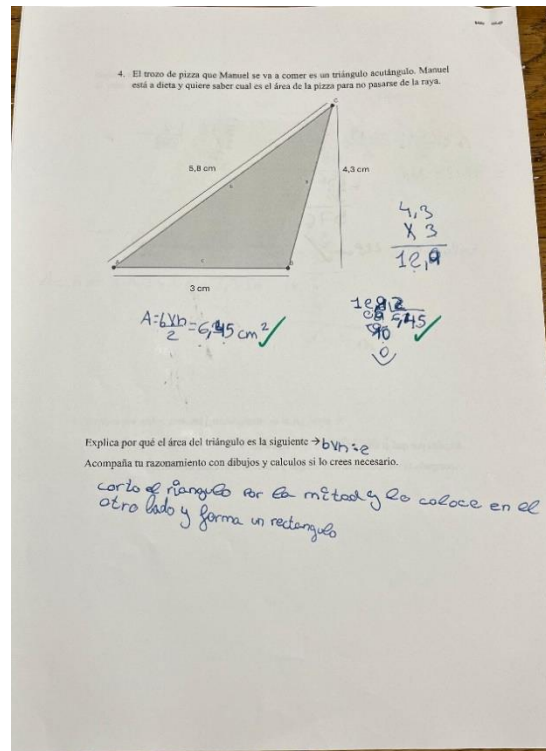 4. El trozo de pizza que Manuel se va a comer es un triángulo acutángulo. Manuel
está a dieta y quiere saber cual es el área de la pizza para no pasarse de la raya.
C
5,8 cm
4,3 cm
4,3
X 3
12,9
A
B
3 cm
A=bxh/2=6,45 cm²
12,9 2
6,45
10
0
Explica por qué el área del triángulo es la siguiente → bxh:2
Acompaña tu razonamiento con dibujos y calculos si lo crees necesario.
corto el riangulo por la mitad y lo coloce en el
otro lado y forma un rectangulo